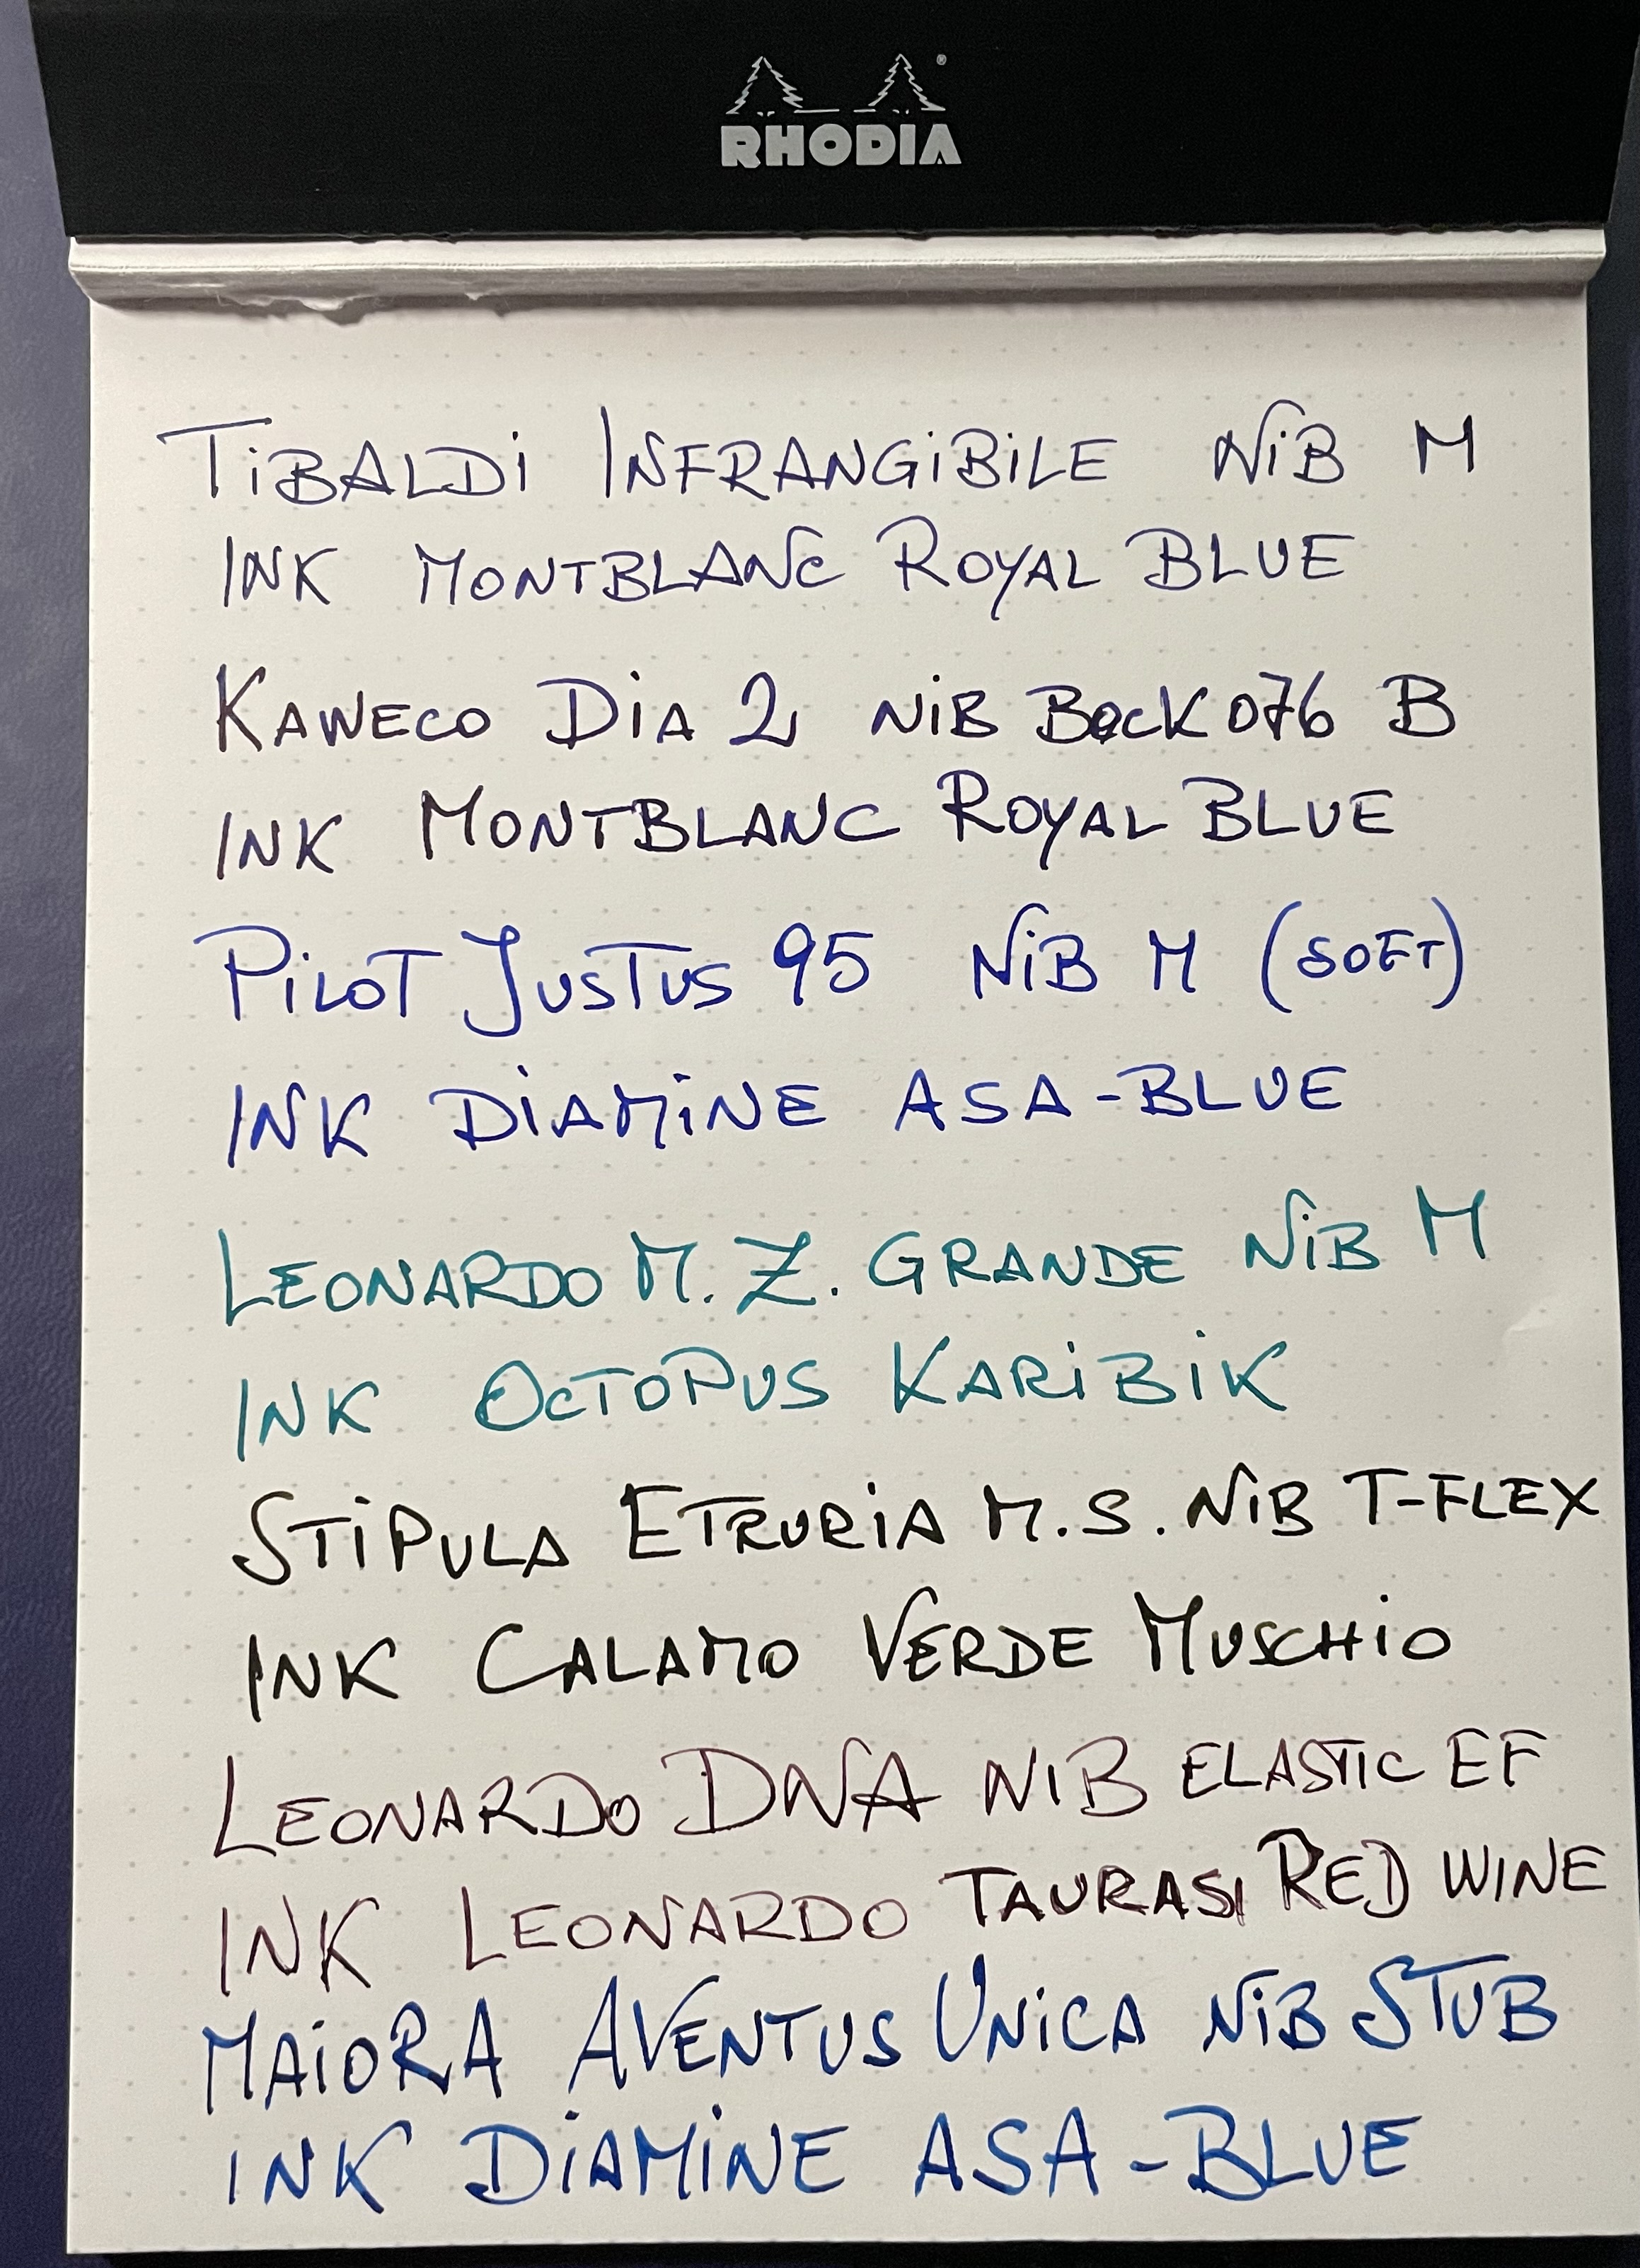 RHODIA
TiBALDi INFRANGiBiLE NiB M
INK MONTBLANC ROYAL BLUE
KAWECO DiA 2 NiB BOCK 076 B
INK MONTBLANC ROYAL BLUE
PiLOT JUSTUS 95 NiB M (SOFT)
INK DiAMiNE ASA-BLUE
LEONARDO M.Z. GRANDE NiB M
INK OCTOPUS KARiBiK
STiPULA ETRURiA M.S. NiB T-FLEX
INK CALAMO VERDE MUSCHiO
LEONARDO DNA NIB ELASTIC EF
INK LEONARDO TAURASI RED WINE
MAiORA AVENTUS UNiCA NiB STUB
INK DiAMiNE ASA-BLUE